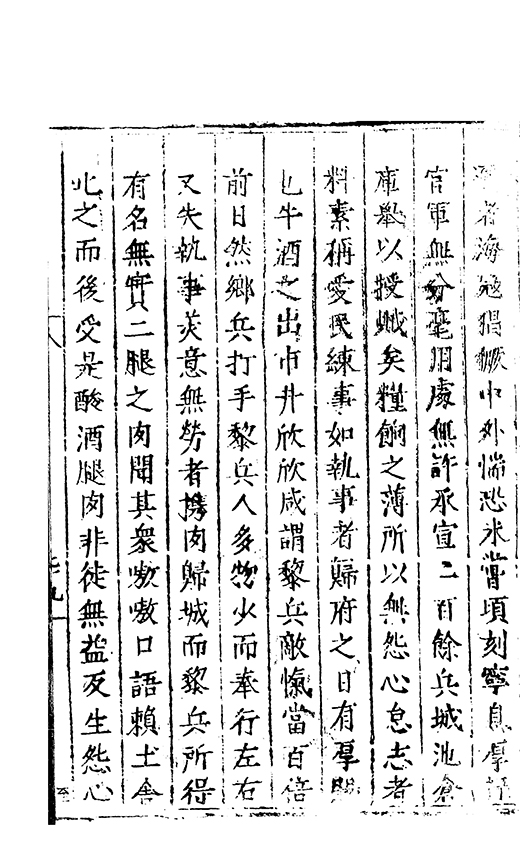 者海寇猖獗中外惴恐未嘗頃刻寧息厚
官軍無分毫用處無許承宣二百餘兵城池倉
庫舉以授蠘矣糧餉之薄所以無怨心怠志者
料素稱愛民練事如執事者歸府之日有厚
也牛酒之出市井欣欣咸謂黎兵敵愾當百倍
前日然鄉兵打手黎兵人多物少而奉行左右
又失執事美意無勞者携肉歸城而黎兵所得
有名無實二腿之肉聞其衆嗷嗷口語賴土舍
止之而後受是酸酒腿肉非徒無益反生怨心